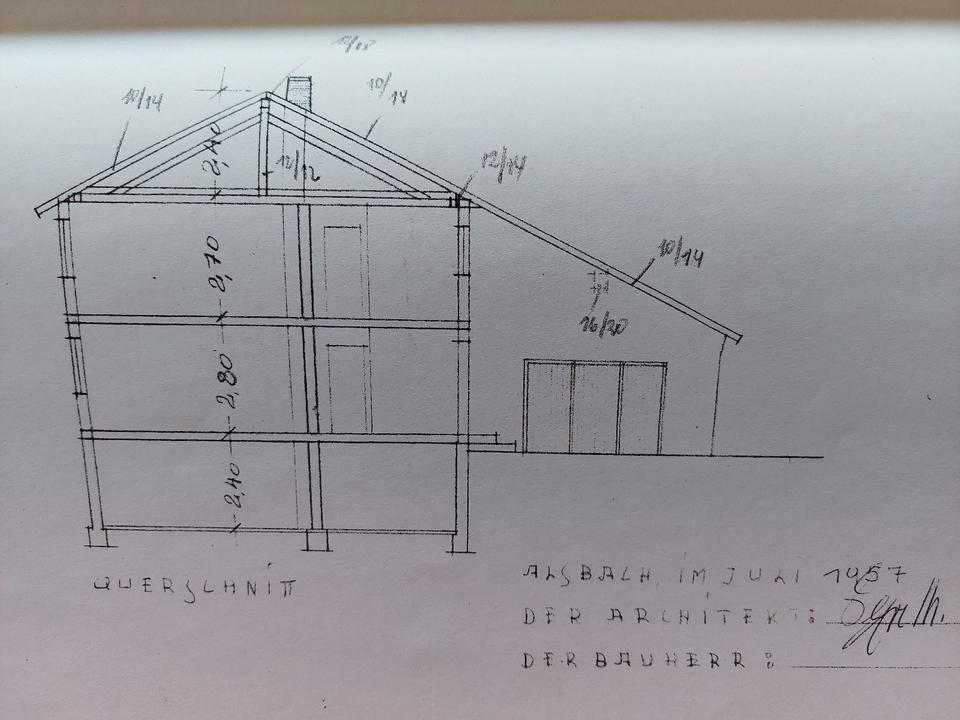 10/14
10/14
2,40
12/12
12/14
2,70
10/14
16/20
2,80
2,40
QUERSCHNITT
ALSBACH, IM JULI 1967
DER ARCHITEKT:
DER BAUHERR: